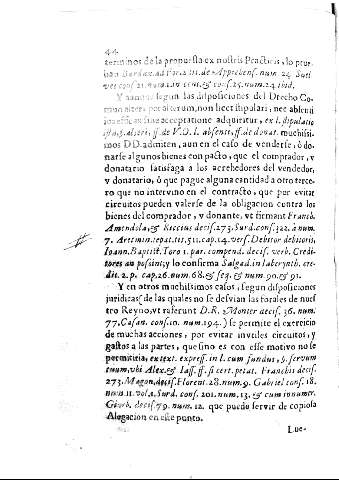 44
terminos de la propuesta ex nostris Practicis, lo prue-
ban Bardax. ad For. 2. tit. de Apprehens. num. 24. Su
ver cons. 21. num. 1. in cent. & cons. 25. num. 24. ibid.
Y aunque segun las disposiciones del Drecho Co-
mun alter, per alterum, non licet stipulari; nec absenti
ius efficax sine acceptatione adquiritur, ex l. stipulatio
ista, §. alteri, ff. de V.O. l. absenti, ff. de donat. muchissi-
mos DD. admiten, aun en el caso de venderse; ò do-
narse algunos bienes con pacto, que el comprador, y
donatario satisfaga à los acrehedores del vendedor,
y donatario, ò que pague alguna cantidad a otro terce-
ro que no intervino en el contracto, que por evitar
circuitos pueden valerse de la obligacion contra los
bienes del comprador, y donante, vt firmant Franch.
Amendola, & Riccius decis. 273. Surd. cons. 322. à num.
7. Aretmin. tepat. tit. 511. cap. 14. vers. Debitor debitoris,
Ioann. Baptist. Toro 1. par. compend. decis. verb. Credi-
tores an possint; y lo confirma Salgad. in labyrinth. cre-
dit. 2. p. cap. 26. num. 68. & seq. & num. 90. & 91.
Y en otros muchissimos casos, segun disposiciones
juridicas (de las quales no se desvian las forales de nues-
tro Reyno, vt referunt D. R. Monter decis. 36. num.
77. Casan. cons. 10. num. 194.) se permite el exercicio
de muchas acciones, por evitar inviles circuitos, y
gastos a las partes, que sino es con este motivo no se
permitiria, ex text. express. in l. cum fundus, §. servum
tuum, vbi Alex. & Iass. ff. si cert. petat. Franchis decis.
273. Magon. decis. Florent. 28. num. 9. Gabriel cons. 18.
num. 11. vol. 1. Surd. cons. 201. num. 13. & cum innumer.
Giurb. decis. 79. num. 12. que puedo servir de copiosa
Alegacion en este punto.
Lue-